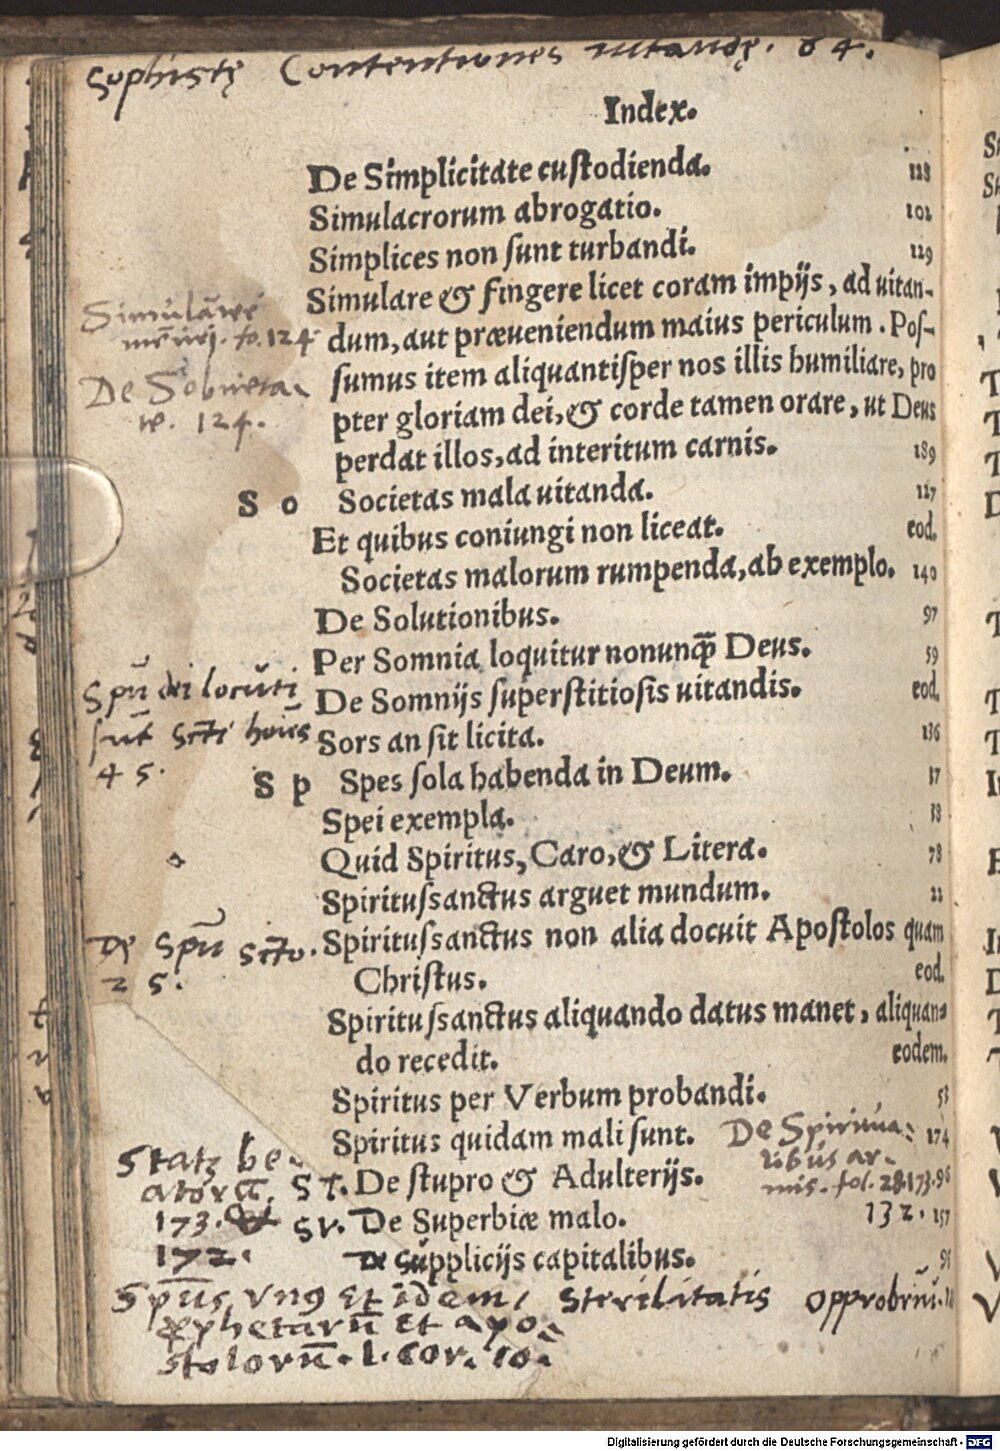 Sophistę Contentiones uitandę. 64.
Index.
De Simplicitate cuſtodienda. 128
Simulacrorum abrogatio. 102
Simplices non ſunt turbandi. 129
Simulare & fingere licet coram impijs, ad uitan-
dum, aut præueniendum maius periculum. Poſ-
ſumus item aliquantiſper nos illis humiliare, pro
pter gloriam dei, & corde tamen orare, ut Deus
perdat illos, ad interitum carnis. 189
fo. 124
De Sobrieta-
te. 124.
S o Societas mala uitanda. 127
Et quibus coniungi non liceat. eod.
Societas malorum rumpenda, ab exemplo. 140
De Solutionibus. 97
Per Somnia loquitur nonunq̃ Deus. 59
De Somnijs ſuperſtitioſis uitandis. eod.
Sors an ſit licita. 136
Spũ dei locũti
ſũt sc̃ti hoi͂es
45.
S p Spes ſola habenda in Deum. 37
Spei exempla. 38
Quid Spiritus, Caro, & Litera. 78
Spirituſsanctus arguet mundum. 22
Spirituſsanctus non alia docuit Apoſtolos quam
Chriſtus. eod.
De Spũ sc̃to.
25.
Spirituſsanctus aliquando datus manet, aliquan-
do recedit. eodem.
Spiritus per Verbum probandi. 53
Spiritus quidam mali ſunt. 174
De Spiritua-
libus ar-
mis. fol. 28. 173.
132.
be-
atorũ.
173.
172.
ST. De ſtupro & Adulterijs. 96
SV. De Superbiæ malo. 157
De Supplicijs capitalibus. 95
Sp̃us vnꝰ et idem,
ꝓphetarũ et apo-
stolorũ. 1. cor. 10.
Sterilitatis opprobriũ.
Digitalisierung gefördert durch die Deutsche Forschungsgemeinschaft - DFG